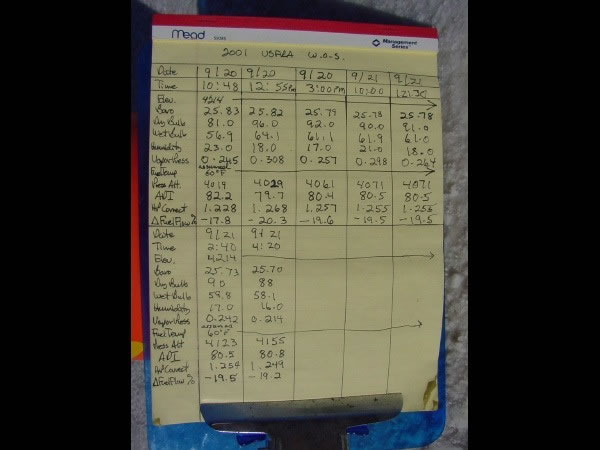 Mead
Management Series
2001 USFRA W.O.S.
Date 9/20 9/20 9/20 9/21 9/21
Time 10:48 12:55pm 3:00pm 10:00 12:30
Elev. 4214
Baro 25.83 25.82 25.79 25.78 25.78
Dry Bulb 81.0 96.0 92.0 90.0 91.0
Wet Bulb 56.9 64.1 61.1 61.9 61.0
Humidity 23.0 18.0 17.0 21.0 18.0
Vapor Press 0.245 0.308 0.257 0.298 0.264
Fuel Temp assumed 60°F
Press Alt. 4019 4029 4061 4071 4071
ADI 82.2 79.7 80.4 80.5 80.5
HP Correct 1.228 1.268 1.257 1.255 1.255
Δ Fuel Flow % -17.8 -20.3 -19.6 -19.5 -19.5
Date 9/21 9/21
Time 2:40 4:20
Elev. 4214
Baro 25.73 25.70
Dry Bulb 90 88
Wet Bulb 59.8 58.1
Humidity 17.0 16.0
Vapor Press 0.242 0.214
Fuel Temp assumed 60°F
Press Alt 4123 4155
ADI 80.5 80.8
HP Correct 1.254 1.249
Δ Fuel Flow % -19.5 -19.2